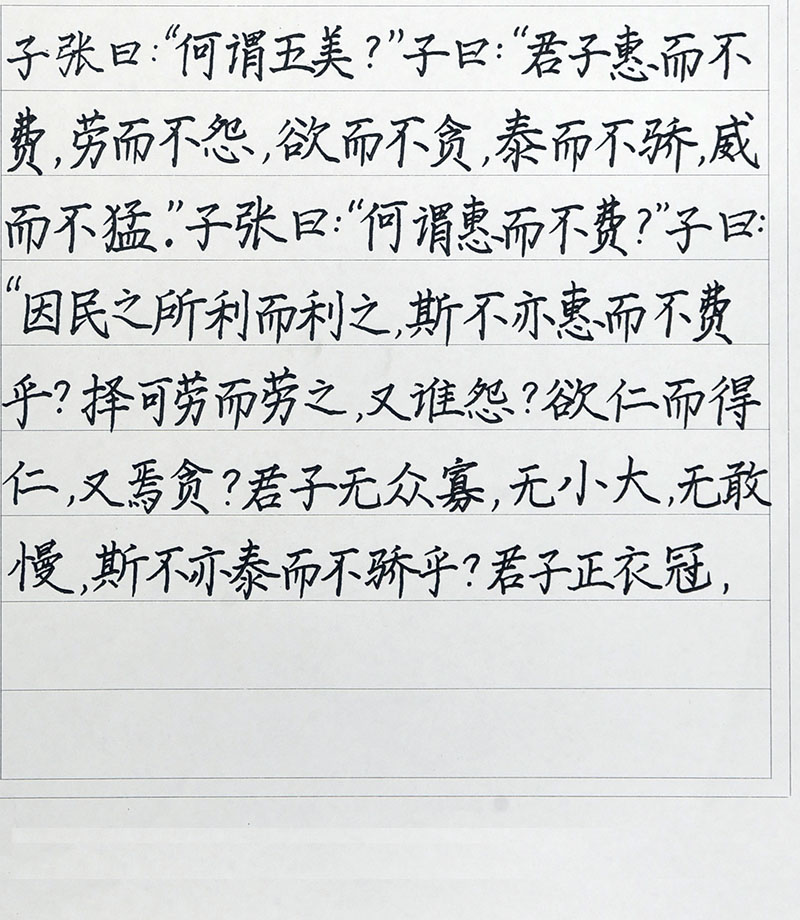 子张曰:“何谓五美?”子曰:“君子惠而不
费,劳而不怨,欲而不贪,泰而不骄,威
而不猛。”子张曰:“何谓惠而不费?”子曰:
“因民之所利而利之,斯不亦惠而不费
乎?择可劳而劳之,又谁怨?欲仁而得
仁,又焉贪?君子无众寡,无小大,无敢
慢,斯不亦泰而不骄乎?君子正衣冠,